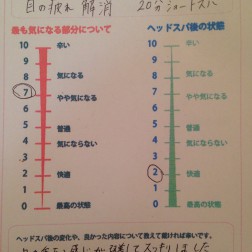 目の疲れ 解消 20分ショートスパ
最も気になる部分について
10 辛い
9
8 気になる
7 やや気になる
6
5 普通
4 気にならない
3
2 快適
1
0 最高の状態
ヘッドスパ後の状態
10 辛い
9
8 気になる
7 やや気になる
6
5 普通
4 気にならない
3
2 快適
1
0 最高の状態
ヘッドスパ後の変化や、良かった内容について教えて頂ければ幸いです。
スッキリしました